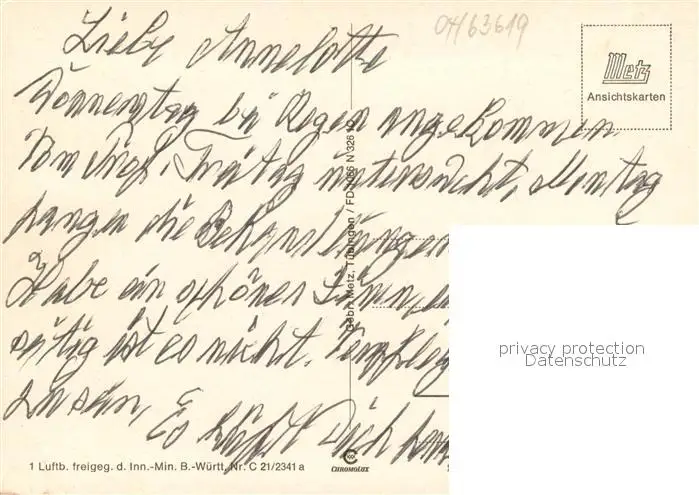 Liebe Annelotte
04/63619
Metz
Ansichtskarten
Donnerstag bei Regen angekommen
Vom Prof. Freitag untersucht, Montag
fangen die Behandlungen
Habe ein schönes Zimmer,
ist es nicht. Verpfleg
Es grüßt Dich
Gebr. Metz, Tübingen / FD 1066 N 326 10
privacy protection
Datenschutz
1 Luftb. freigeg. d. Inn.-Min. B.-Württ. Nr. C 21/2341 a
CHROMOLUX